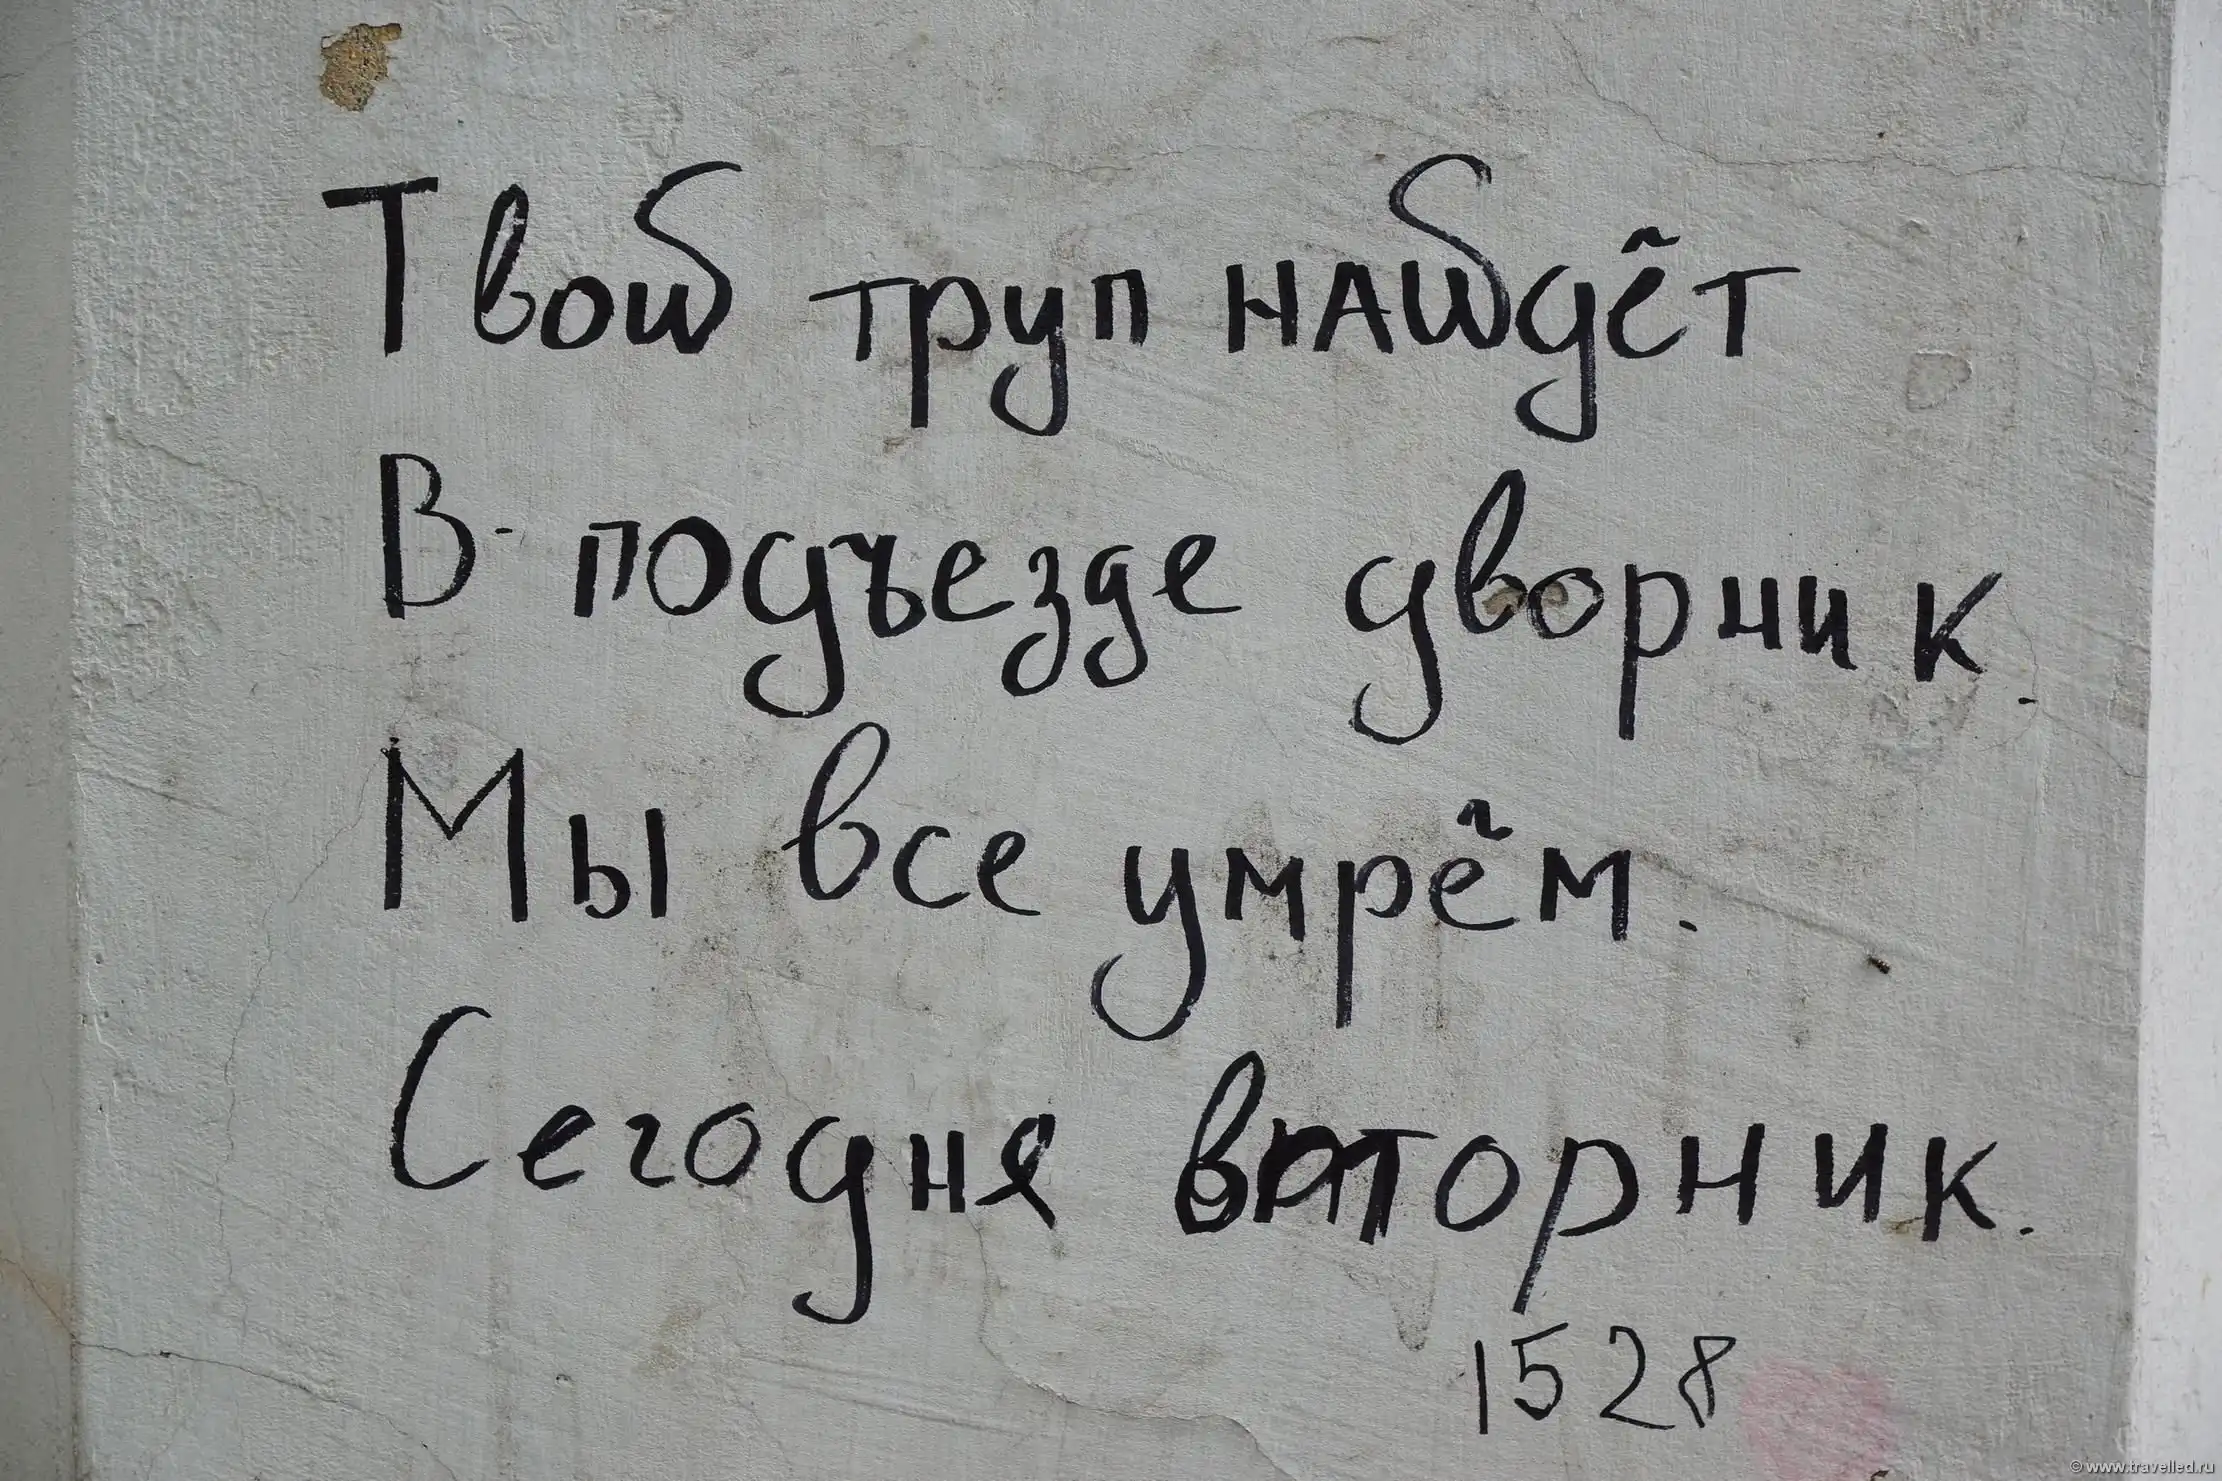 Твой труп найдёт
В подъезде дворник.
Мы все умрём.
Сегодня вторник.
1528
© www.travelled.ru